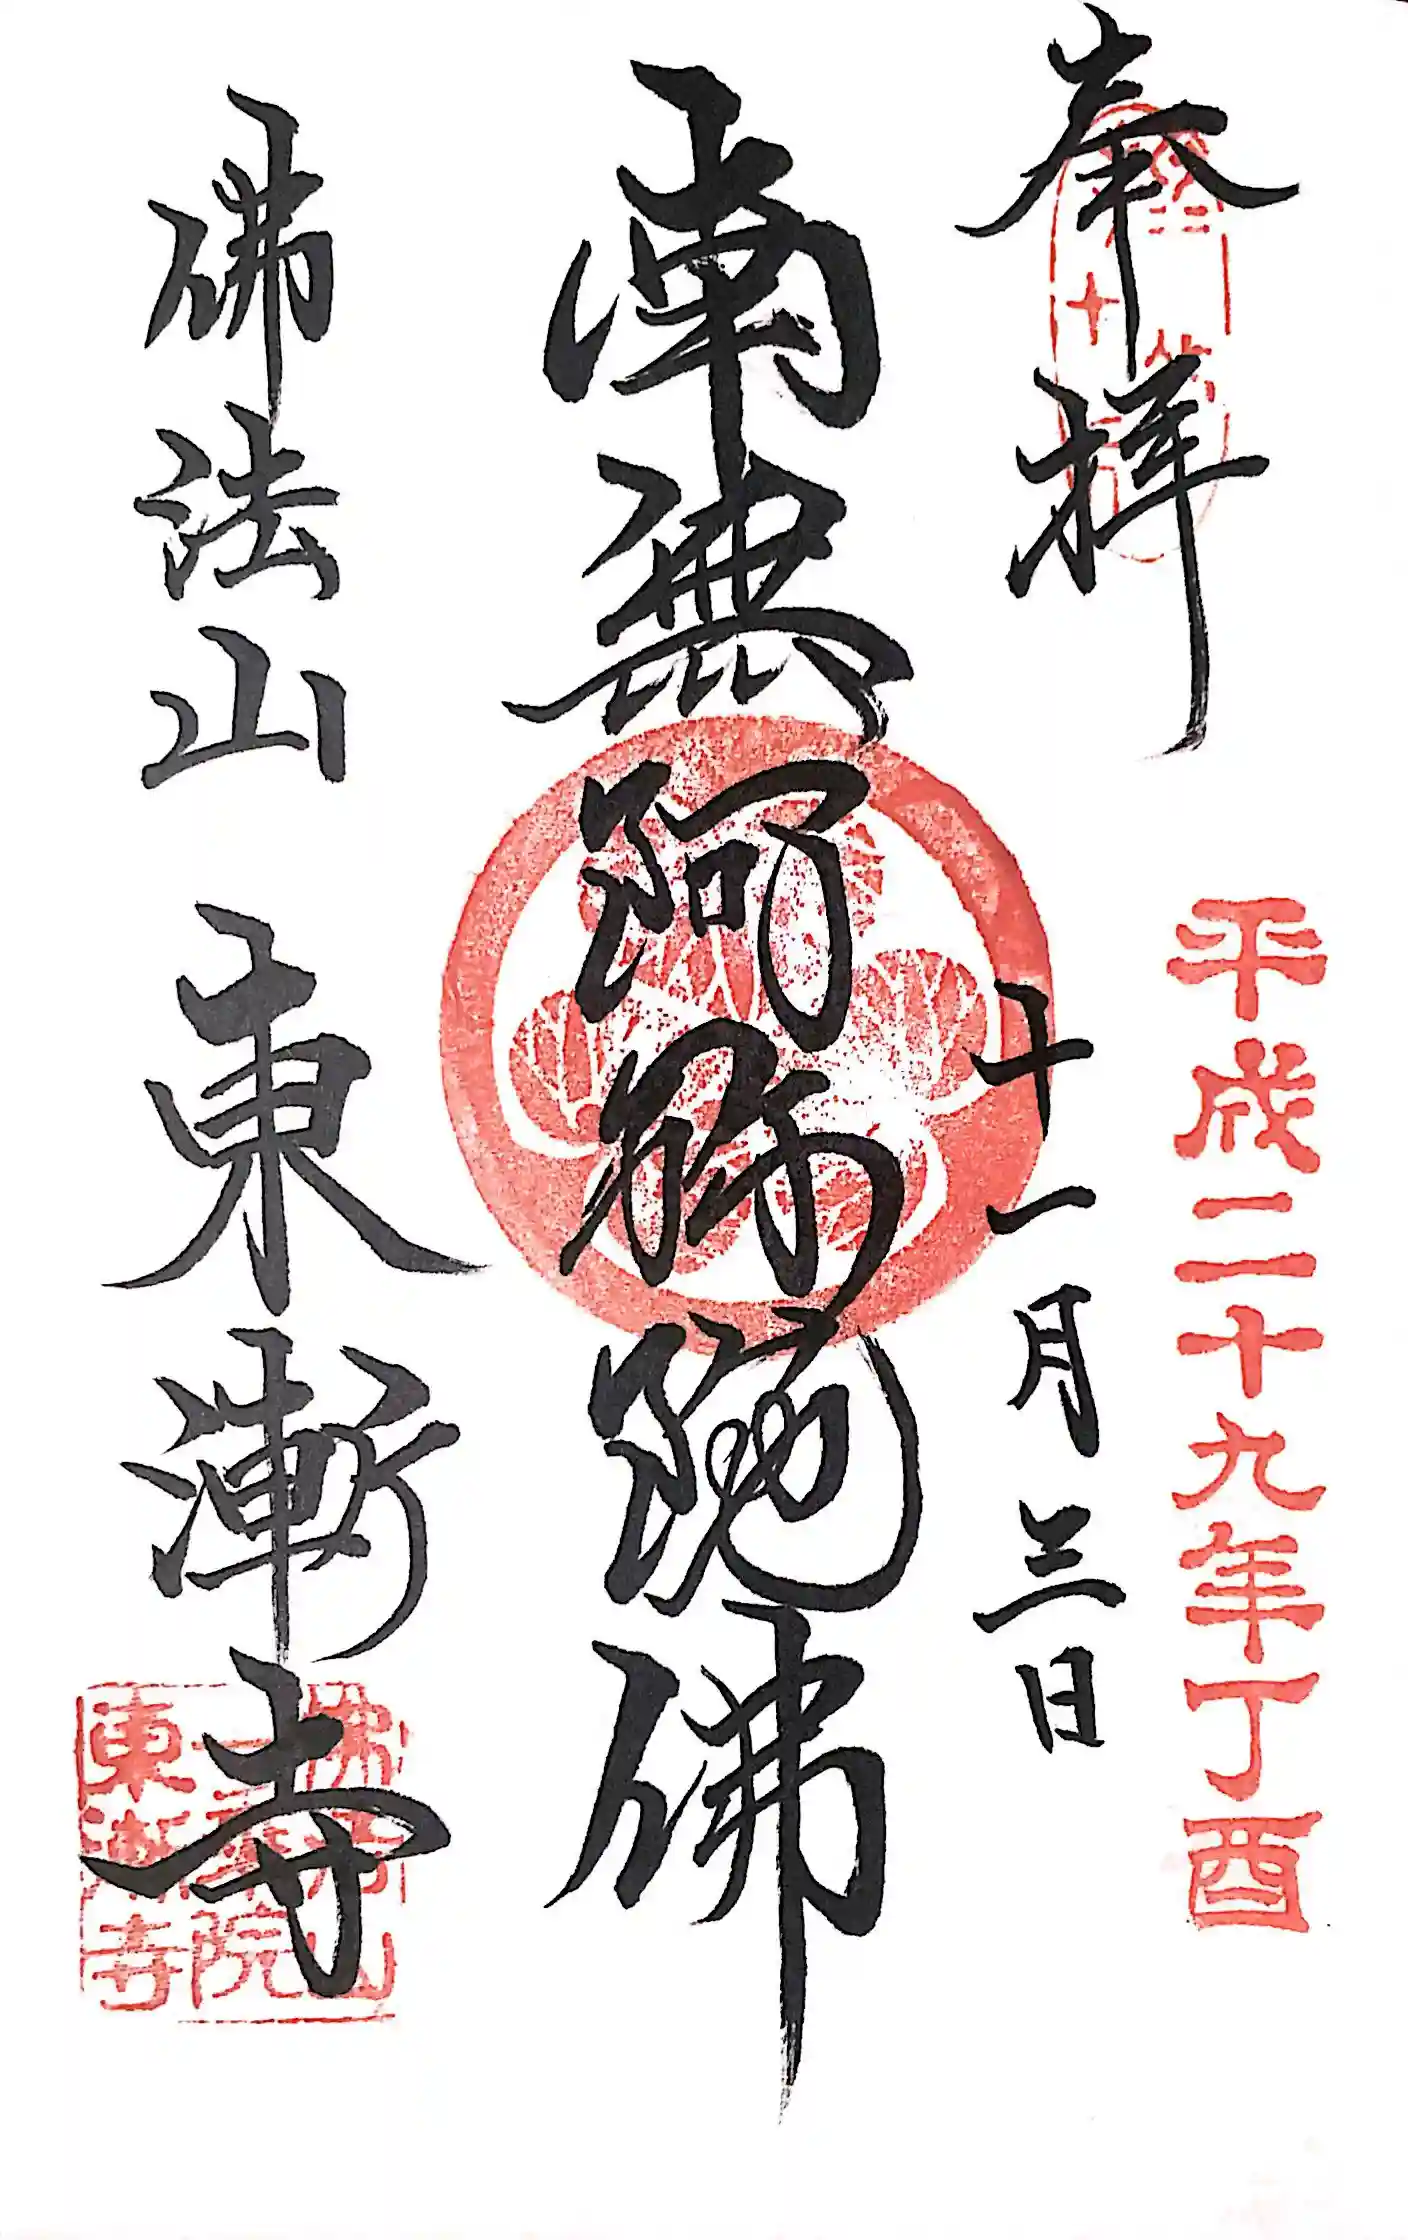 奉拝
平成二十九年丁酉
十一月三日
南無阿弥陀佛
佛法山
東漸寺
佛法山
一乗院
東漸寺